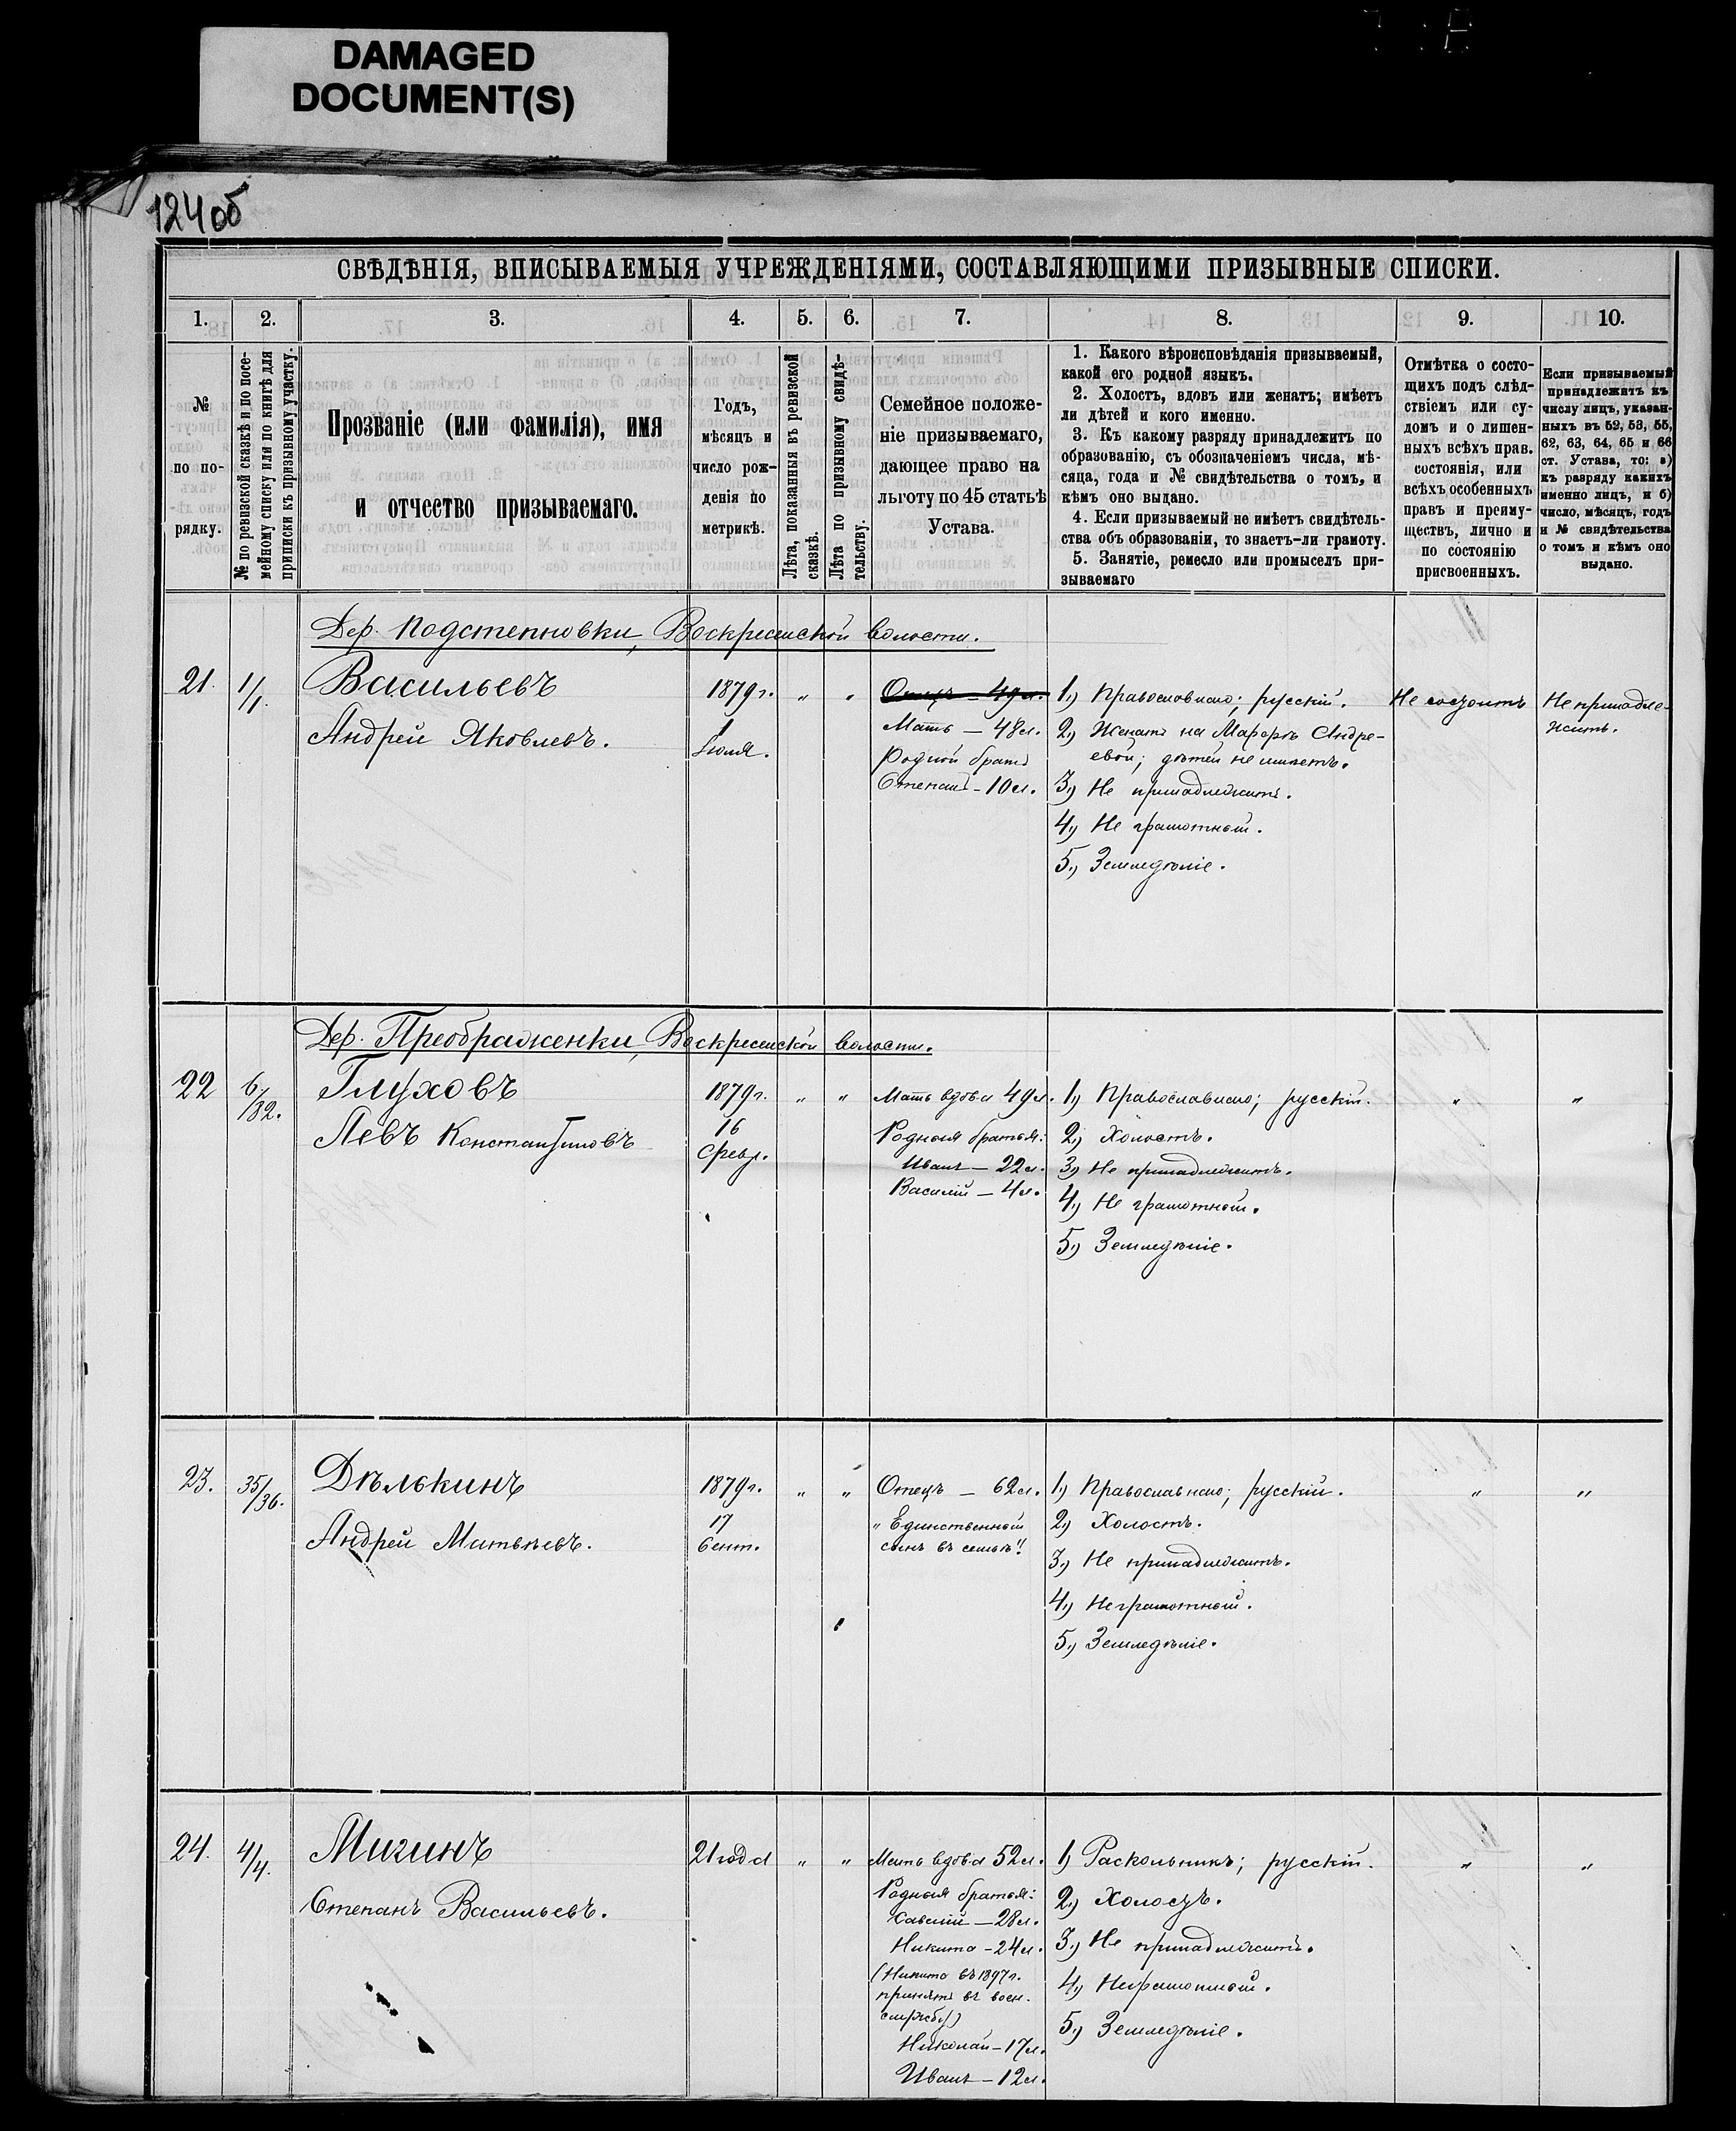 DAMAGED
DOCUMENT(S)
124об
СВѢДѢНІЯ, ВПИСЫВАЕМЫЯ УЧРЕЖДЕНІЯМИ, СОСТАВЛЯЮЩИМИ ПРИЗЫВНЫЕ СПИСКИ.
1. 2. 3. 4. 5. 6. 7. 8. 9. 10.
№
по по-
рядку.
№ по ревизской сказкѣ и по посе-
мейному списку или по книгѣ для
приписки къ призывному участку.
Прозваніе (или фамилія), имя
и отчество призываемаго.
Годъ,
мѣсяцъ и
число рож-
денія по
метрикѣ.
Лѣта, показанныя въ ревизской
сказкѣ.
Лѣта по призывному свидѣ-
тельству.
Семейное положе-
ніе призываемаго,
дающее право на
льготу по 45 статьѣ
Устава.
1. Какого вѣроисповѣданія призываемый,
какой его родной языкъ.
2. Холостъ, вдовъ или женатъ; имѣетъ
ли дѣтей и кого именно.
3. Къ какому разряду принадлежитъ по
образованію, съ обозначеніемъ числа, мѣ-
сяца, года и № свидѣтельства о томъ, и
кѣмъ оно выдано.
4. Если призываемый не имѣетъ свидѣтель-
ства объ образованіи, то знаетъ-ли грамоту.
5. Занятіе, ремесло или промыселъ при-
зываемаго
Отмѣтка о состо-
ящихъ подъ слѣд-
ствіемъ или су-
домъ и о лишен-
ныхъ всѣхъ прав.
состоянія, или
всѣхъ особенныхъ
правъ и преиму-
ществъ, лично и
по состоянію
присвоенныхъ.
Если призываемый
принадлежитъ къ
числу лицъ, указан-
ныхъ въ 52, 53, 55,
62, 63, 64, 65 и 66
ст. Устава, то: а)
къ разряду какихъ
именно лицъ, и б)
число, мѣсяцъ, годъ
и № свидѣтельства
о томъ и кѣмъ оно
выдано.
Дер. Подстепновки, Воскресенской волости.
21. 1/1.
Васильевъ
Андрей Яковлевъ.
1879г.
1
Іюля.
" "
Отецъ — 49л.
Мать — 48л.
Родной братъ
Степанъ — 10л.
1.) Православнаго; русскій.
2.) Женатъ на Марфѣ Андре-
евой; дѣтей не имѣетъ.
3.) Не принадлежитъ.
4.) Не грамотный.
5.) Земледѣліе.
Не состоитъ
Не принадле-
житъ.
Дер. Преображенки, Воскресенской волости.
22 6/32.
Глуховъ
Левъ Константиновъ
1879г.
16
Февр.
" "
Мать вдова 49л.
Родныя братья:
Иванъ — 22л.
Василій — 4л.
1.) Православнаго; русскій.
2.) Холостъ.
3.) Не принадлежитъ.
4.) Не грамотный.
5.) Земледѣліе.
" "
23. 35/36.
Дѣлькинъ
Андрей Матвѣевъ.
1879г.
17
Сент.
" "
Отецъ — 62л.
"Единственный
сынъ въ семьѣ"
1.) Православнаго; русскій.
2.) Холостъ.
3.) Не принадлежитъ.
4.) Неграмотный.
5.) Земледѣліе.
" "
24. 4/4.
Мигинъ
Степанъ Васильевъ.
21 года
" "
Мать вдова 52л.
Родныя братья:
— 28л.
Никита — 24л.
(Никита въ 1897г.
принятъ въ воен.
службу)
Николай — 17л.
Иванъ — 12л.
1.) Раскольникъ; русскій.
2.) Холостъ.
3.) Не принадлежитъ.
4.) Неграмотный.
5.) Земледѣліе.
" "